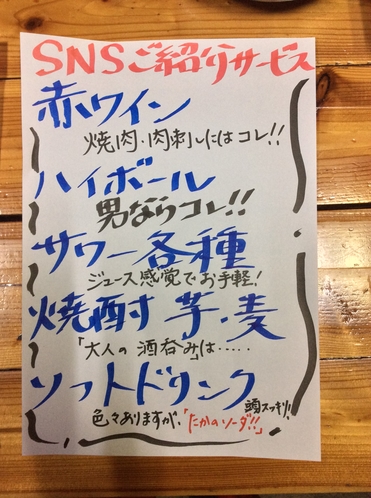 SNSご紹介サービス
赤ワイン
焼肉・肉刺しにはコレ!!
ハイボール
男ならコレ!!
サワー各種
ジュース感覚でお手軽!
焼酎 芋・麦
「大人の酒呑み」は・・・・・
ソフトドリンク
頭スッキリ!
色々ありますが、「たかのソーダ!!」